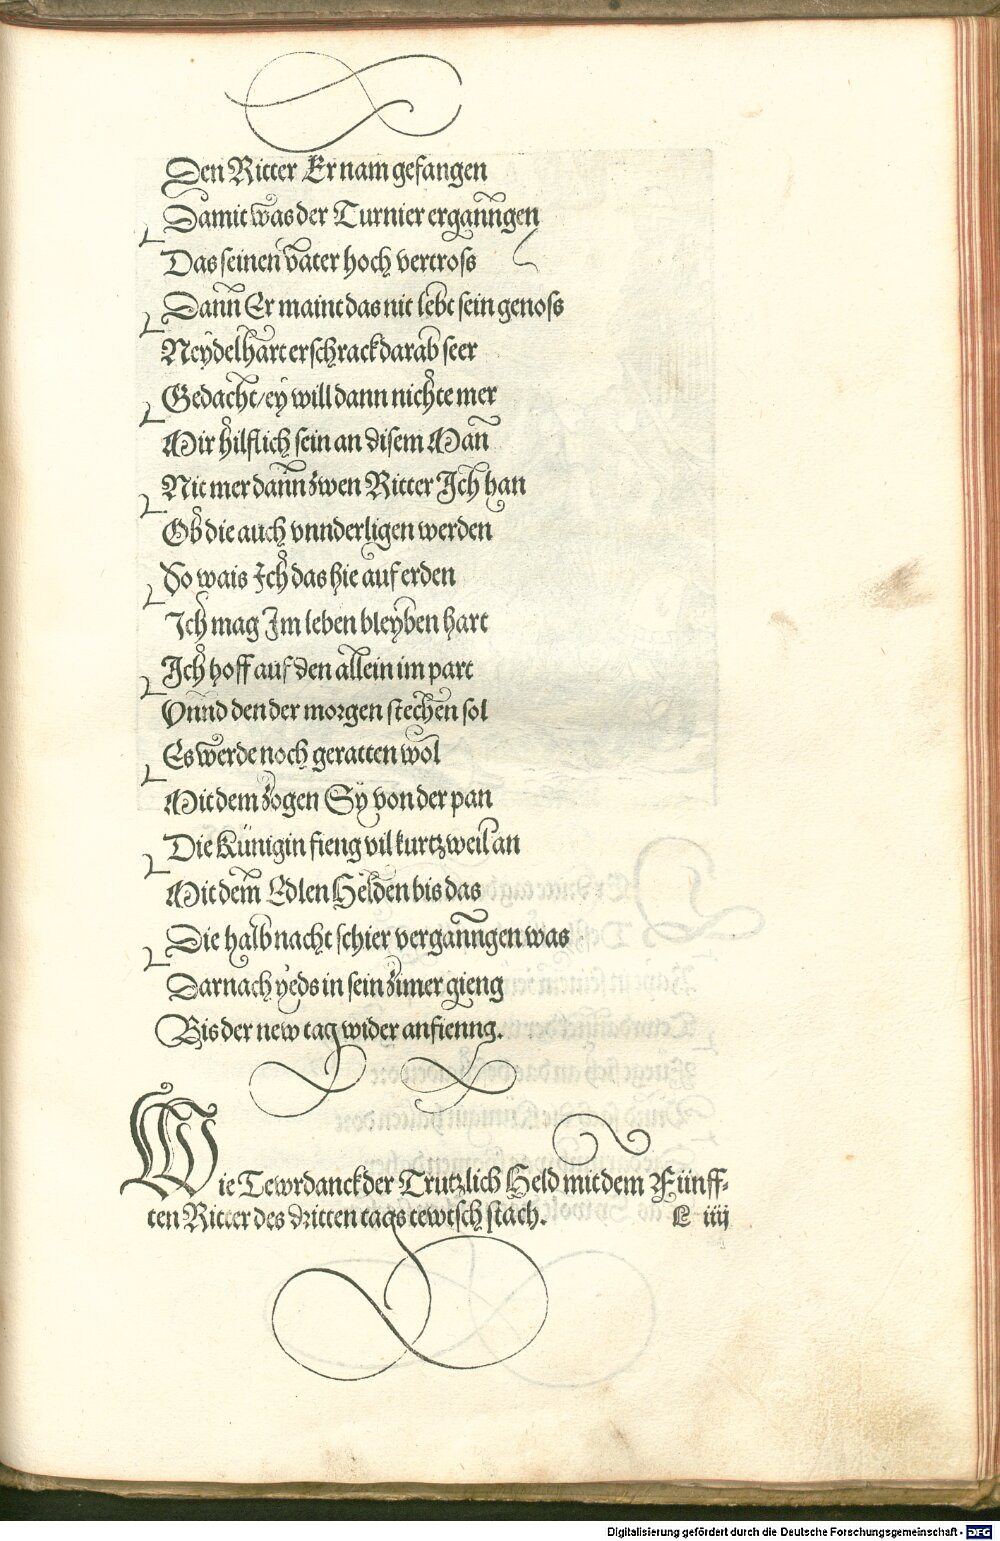 Den Ritter Er nam gefangen
Damit was der Turnier erganngen
Das seinen vater hoch vertross
Dann Er maint das nit lebt sein genoss
Neydelhart erschrack darab seer
Gedacht/ey will dann nichte mer
Mir hilflich sein an disem Man
Nit mer dann zwen Ritter Ich han
Ob die auch vnnderligen werden
So wais Ich das hie auf erden
Ich mag Im leben bleyben hart
Ich hoff auf den allein im part
Vnnd den der morgen stechen sol
Es werde noch geratten wol
Mit dem zogen Sy von der pan
Die Künigin fieng vil kurtzweil an
Mit dem Edlen Helden bis das
Die halb nacht schier verganngen was
Darnach yeds in sein zimer gieng
Bis der new tag wider anfienng.
Wie Tewrdanck der Trutzlich Held mit dem Fünff-
ten Ritter des dritten tags tewtsch stach. R iiij
Digitalisierung gefördert durch die Deutsche Forschungsgemeinschaft - DFG